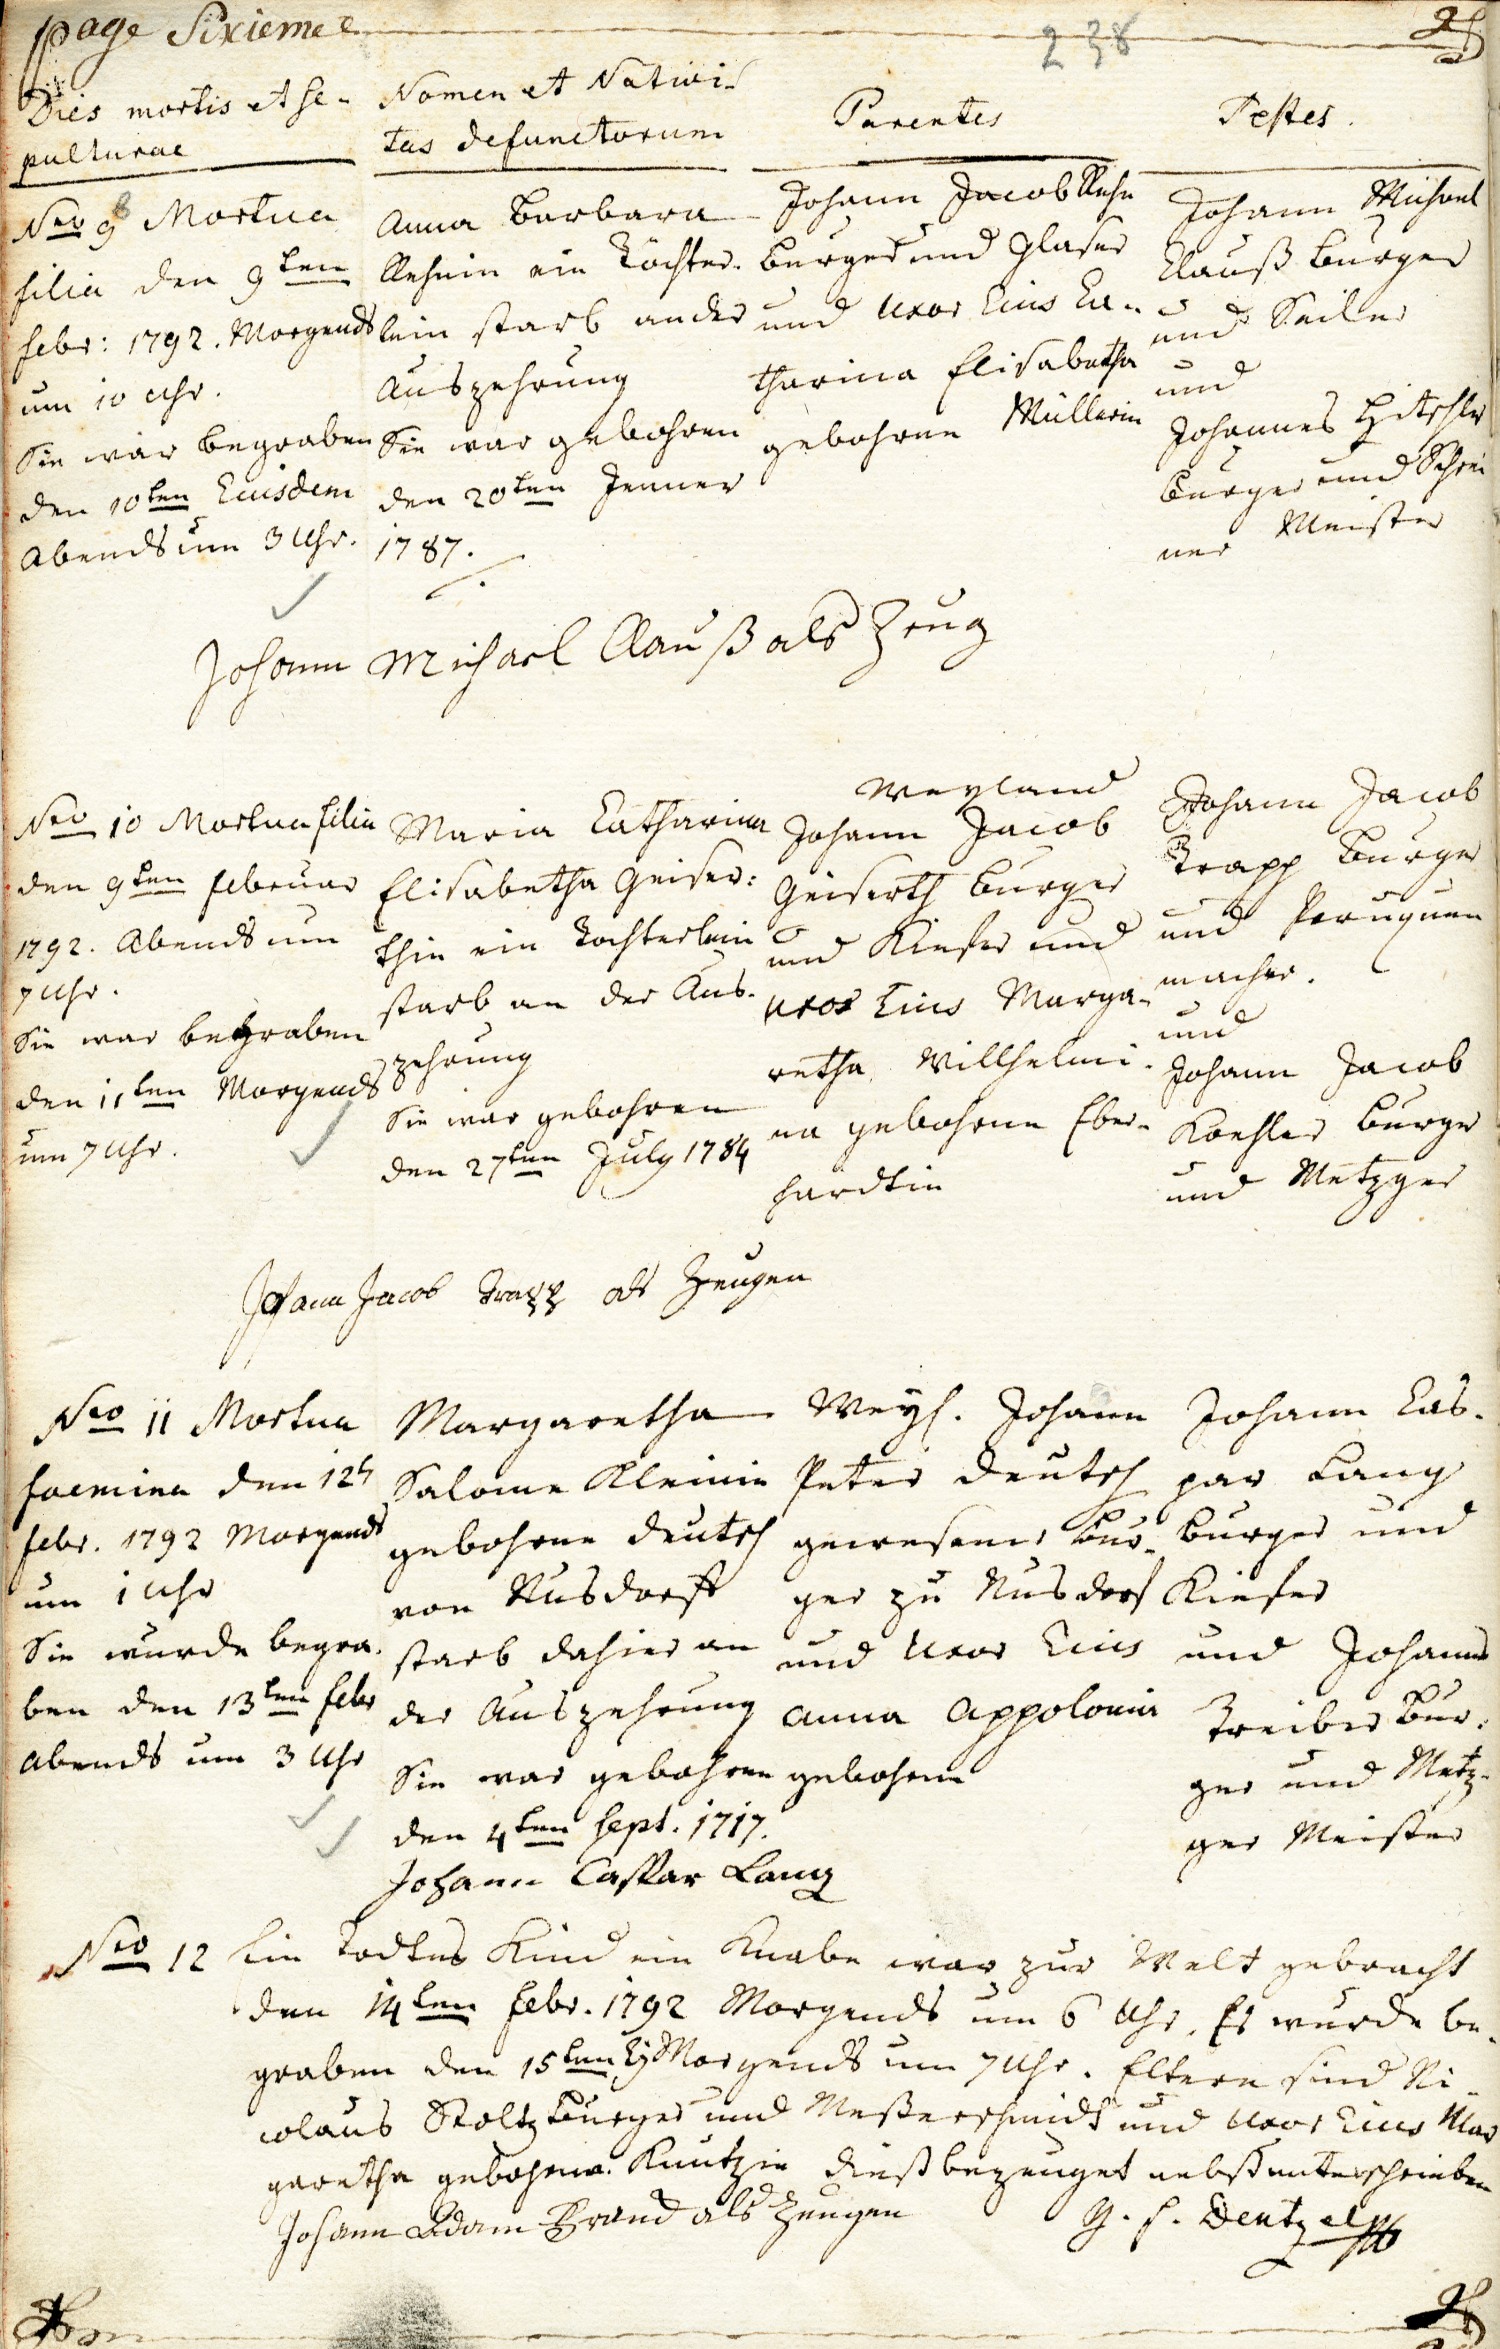 page Sixieme
238
Dies mortis et se-
pulturae
Nomen et Nativi-
tas defunctorum
Parentes
Testes.
Nro 9 Mortua
filia den 9ten
febr: 1792. Morgends
um 10 Uhr.
Sie war begraben
den 10ten Eiusdem
Abends um 3 Uhr.
Anna Barbara
Rehnin ein Töchter-
lein starb an der
Auszehrung
Sie war gebohren
den 20ten Jenner
1787.
Johann Jacob Rehn
Burger und Glaser
und Uxor Eius Ca-
tharina Elisabetha
gebohrne Müllerin
Johann Michael
Clauß Burger
und Seiler
und
Johannes Hitschler
Burger und Schrei
ner Meister
Johann Michael Clauß als Zeug
Nro 10 Mortua filia
den 9ten Februar
1792. Abends um
7 Uhr.
Sie war begraben
den 11ten Morgends
um 7 Uhr.
Maria Catharina
Elisabetha Geiser:
thin ein Tochterlein
starb an der Aus-
zehrung
Sie war gebohren
den 27ten July 1784
Weyland
Johann Jacob
Geiserth Burger
und Kiefer und
Uxor Eius Marga-
retha Willhelmi-
na gebohrne Eber-
hardtin
Johann Jacob
Trapp Burger
und Peruquen
macher.
und
Johann Jacob
Koehler Burger
und Metzger
Johann Jacob Trapp als Zeugen
Nro 11 Mortua
foemina den 12t
febr. 1792 Morgends
um 1 Uhr
Sie wurde begra-
ben den 13ten febr
Abends um 3 Uhr
Margaretha
Salome Kleinin
gebohrne Deutsch
von Nusdorff
starb dahier an
der Auszehrung
Sie war gebohren
den 4ten Sept. 1717.
Weyl. Johann
Peter Deutsch
gewesener Bur-
ger zu Nusdorf
und Uxor Eius
Anna Appolonia
gebohrne
Johann Cas-
par Lang
Burger und
Kiefer
und Johannes
Treiber Bur-
ger und Metz-
ger Meister
Johann Caspar Lang
Nro 12 Ein Todtes Kind ein Knabe war zur Welt gebracht
den 14ten Febr. 1792 Morgends um 6 Uhr. Es wurde be-
graben den 15ten Ej Morgends um 7 Uhr. Eltern sind Ni-
colaus Stoltz Burger und Meßerschmidt und Uxor Eius Mar
garetha gebohrne Kuntzin dießbezeuget nebst unterschrieben
Johann Adam Brand als Zeugen
G. F. Dentzel